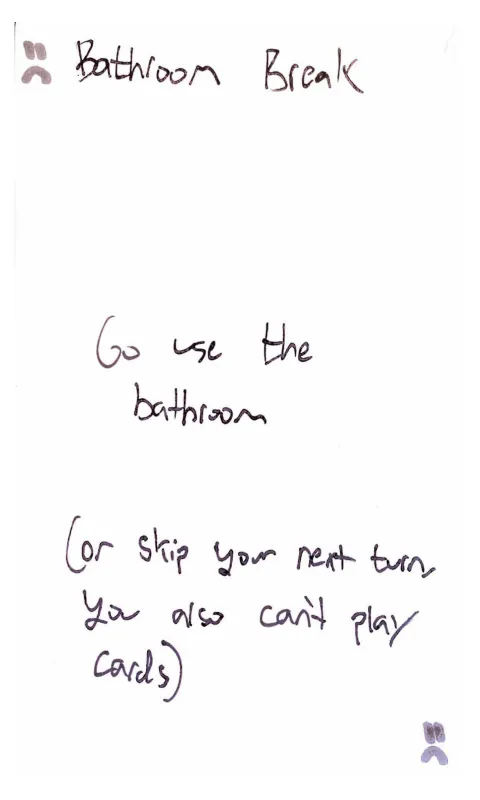 Bathroom Break
Go use the
bathroom
(or skip your next turn,
you also can't play
cards)